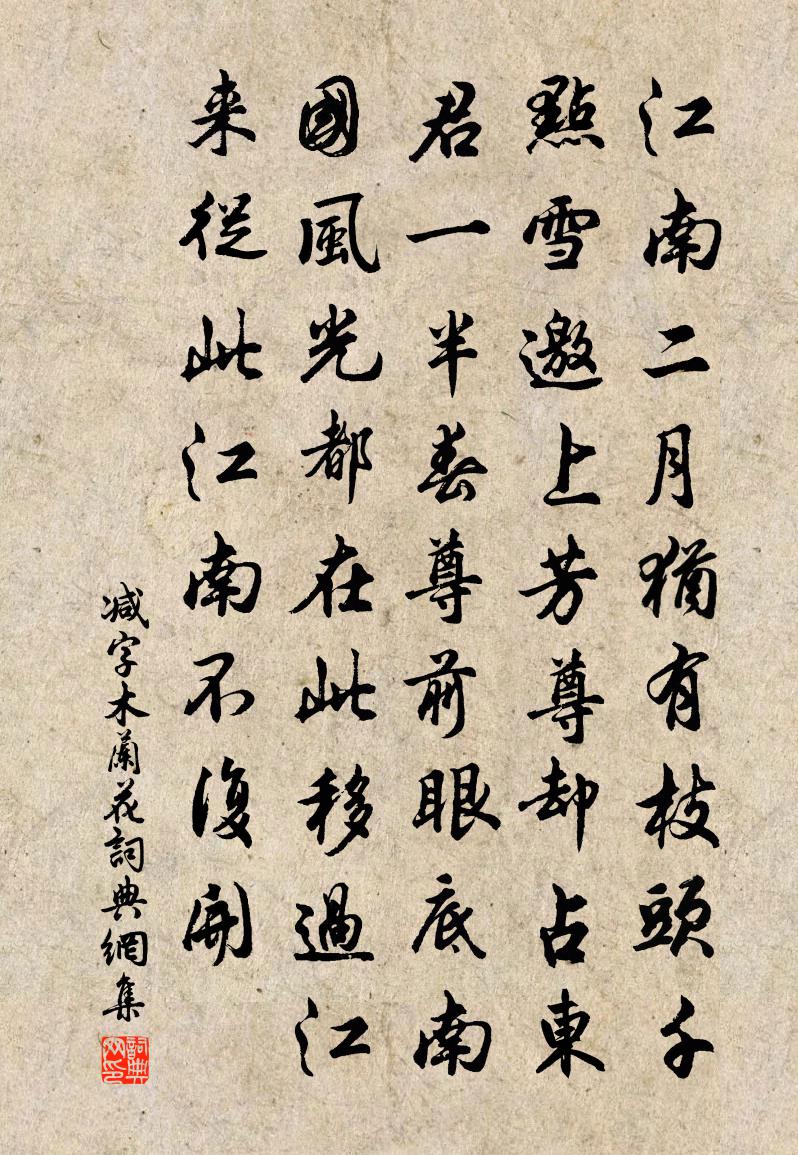 江南二月猶有枝頭千
點雪邀上芳尊却占東
君一半春尊前眼底南
國風光都在此移過江
来從此江南不復開
减字木蘭花詞典網集
詞典
网印